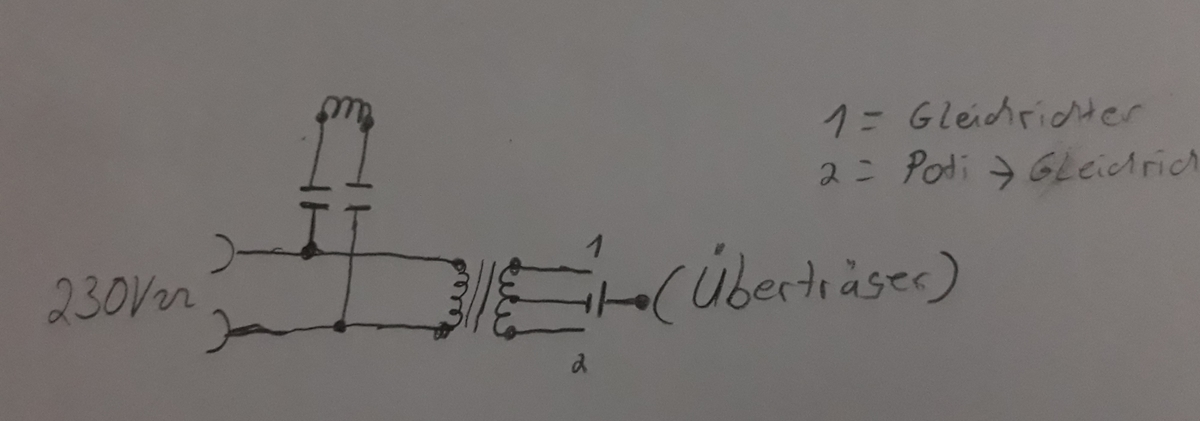 1 = Gleichrichter
2 = Poti → Gleichrich
1
230V~
(Überträger)
2